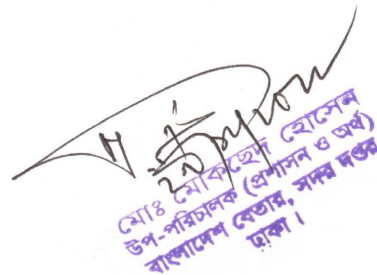 মোঃ মোকছেদ হোসেন
উপ-পরিচালক (প্রশাসন ও অর্থ)
বাংলাদেশ বেতার, সদর দপ্তর
ঢাকা।